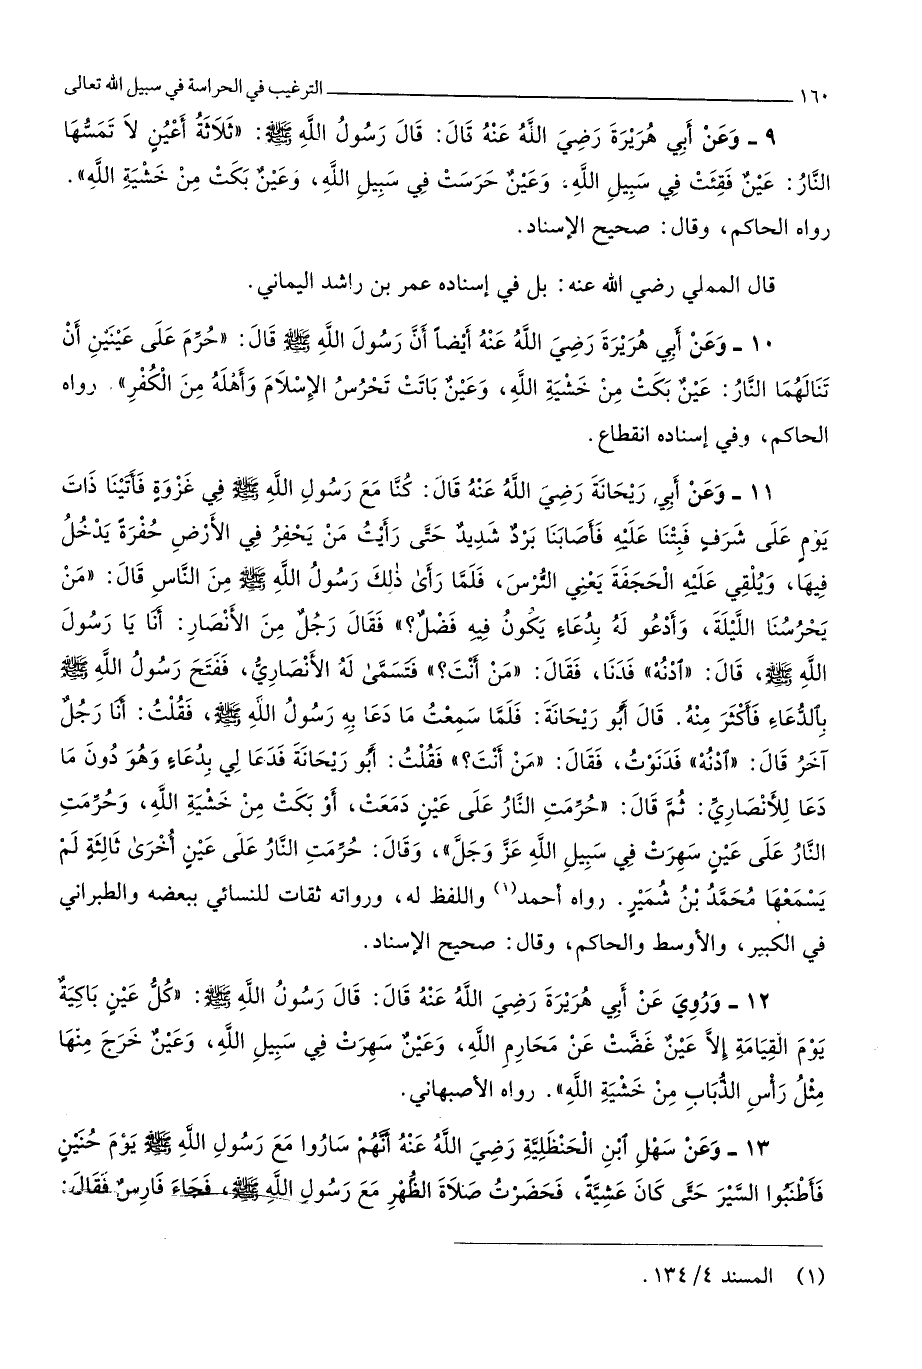 ١٦٠ ــــــــــــــــــــــــــــــــــ الترغيب في الحراسة في سبيل الله تعالى
٩ ـ وَعَنْ أَبِي هُرَيْرَةَ رَضِيَ اللَّهُ عَنْهُ قَالَ: قَالَ رَسُولُ اللَّهِ ﷺ: «ثَلَاثَةُ أَعْيُنٍ لاَ تَمَسُّهَا
النَّارُ: عَيْنٌ فُقِئَتْ فِي سَبِيلِ اللَّهِ، وَعَيْنٌ حَرَسَتْ فِي سَبِيلِ اللَّهِ، وَعَيْنٌ بَكَتْ مِنْ خَشْيَةِ اللَّهِ».
رواه الحاكم، وقال: صحيح الإسناد.
قال المملي رضي الله عنه: بل في إسناده عمر بن راشد اليماني.
١٠ ـ وَعَنْ أَبِي هُرَيْرَةَ رَضِيَ اللَّهُ عَنْهُ أَيْضاً أَنَّ رَسُولَ اللَّهِ ﷺ قَالَ: «حُرِّمَ عَلَى عَيْنَيْنِ أَنْ
تَنَالَهُمَا النَّارُ: عَيْنٌ بَكَتْ مِنْ خَشْيَةِ اللَّهِ، وَعَيْنٌ بَاتَتْ تَحْرُسُ الإِسْلَامَ وَأَهْلَهُ مِنَ الْكُفْرِ». رواه
الحاكم، وفي إسناده انقطاع.
١١ ـ وَعَنْ أَبِي رَيْحَانَةَ رَضِيَ اللَّهُ عَنْهُ قَالَ: كُنَّا مَعَ رَسُولِ اللَّهِ ﷺ فِي غَزْوَةٍ فَأَتَيْنَا ذَاتَ
يَوْمٍ عَلَى شَرَفٍ فَبِتْنَا عَلَيْهِ فَأَصَابَنَا بَرْدٌ شَدِيدٌ حَتَّى رَأَيْتُ مَنْ يَحْفِرُ فِي الأَرْضِ حُفْرَةً يَدْخُلُ
فِيهَا، وَيُلْقِي عَلَيْهِ الْحَجَفَةَ يَعْنِي التُّرْسَ، فَلَمَّا رَأَىٰ ذٰلِكَ رَسُولُ اللَّهِ ﷺ مِنَ النَّاسِ قَالَ: «مَنْ
يَحْرُسُنَا اللَّيْلَةَ، وَأَدْعُو لَهُ بِدُعَاءٍ يَكُونُ فِيهِ فَضْلٌ؟» فَقَالَ رَجُلٌ مِنَ الأَنْصَارِ: أَنَا يَا رَسُولَ
اللَّهِ ﷺ، قَالَ: «ٱدْنُهْ» فَدَنَا، فَقَالَ: «مَنْ أَنْتَ؟» فَتَسَمَّىٰ لَهُ الأَنْصَارِيُّ، فَفَتَحَ رَسُولُ اللَّهِ ﷺ
بِٱلدُّعَاءِ فَأَكْثَرَ مِنْهُ. قَالَ أَبُو رَيْحَانَةَ: فَلَمَّا سَمِعْتُ مَا دَعَا بِهِ رَسُولُ اللَّهِ ﷺ، فَقُلْتُ: أَنَا رَجُلٌ
آخَرُ قَالَ: «ٱدْنُهْ» فَدَنَوْتُ، فَقَالَ: «مَنْ أَنْتَ؟» فَقُلْتُ: أَبُو رَيْحَانَةَ فَدَعَا لِي بِدُعَاءٍ وَهُوَ دُونَ مَا
دَعَا لِلأَنْصَارِيِّ: ثُمَّ قَالَ: «حُرِّمَتِ النَّارُ عَلَى عَيْنٍ دَمَعَتْ، أَوْ بَكَتْ مِنْ خَشْيَةِ اللَّهِ، وَحُرِّمَتِ
النَّارُ عَلَى عَيْنٍ سَهِرَتْ فِي سَبِيلِ اللَّهِ عَزَّ وَجَلَّ»، وَقَالَ: حُرِّمَتِ النَّارُ عَلَى عَيْنٍ أُخْرَىٰ ثَالِثَةٍ لَمْ
يَسْمَعْهَا مُحَمَّدُ بْنُ شُمَيْرٍ. رواه أحمد(١) واللفظ له، ورواته ثقات للنسائي ببعضه والطبراني
في الكبير، والأوسط والحاكم، وقال: صحيح الإسناد.
١٢ ـ وَرُوِيَ عَنْ أَبِي هُرَيْرَةَ رَضِيَ اللَّهُ عَنْهُ قَالَ: قَالَ رَسُولُ اللَّهِ ﷺ: «كُلُّ عَيْنٍ بَاكِيَةٌ
يَوْمَ الْقِيَامَةِ إِلاَّ عَيْنٌ غَضَّتْ عَنْ مَحَارِمِ اللَّهِ، وَعَيْنٌ سَهِرَتْ فِي سَبِيلِ اللَّهِ، وَعَيْنٌ خَرَجَ مِنْهَا
مِثْلُ رَأْسِ الذُّبَابِ مِنْ خَشْيَةِ اللَّهِ». رواه الأصبهاني.
١٣ ـ وَعَنْ سَهْلِ ٱبْنِ الْحَنْظَلِيَّةِ رَضِيَ اللَّهُ عَنْهُ أَنَّهُمْ سَارُوا مَعَ رَسُولِ اللَّهِ ﷺ يَوْمَ حُنَيْنٍ
فَأَطْنَبُوا السَّيْرَ حَتَّى كَانَ عَشِيَّةً، فَحَضَرْتُ صَلَاةَ الظُّهْرِ مَعَ رَسُولِ اللَّهِ ﷺ، فَجَاءَ فَارِسٌ فَقَالَ:
(١) المسند ٤/ ١٣٤.